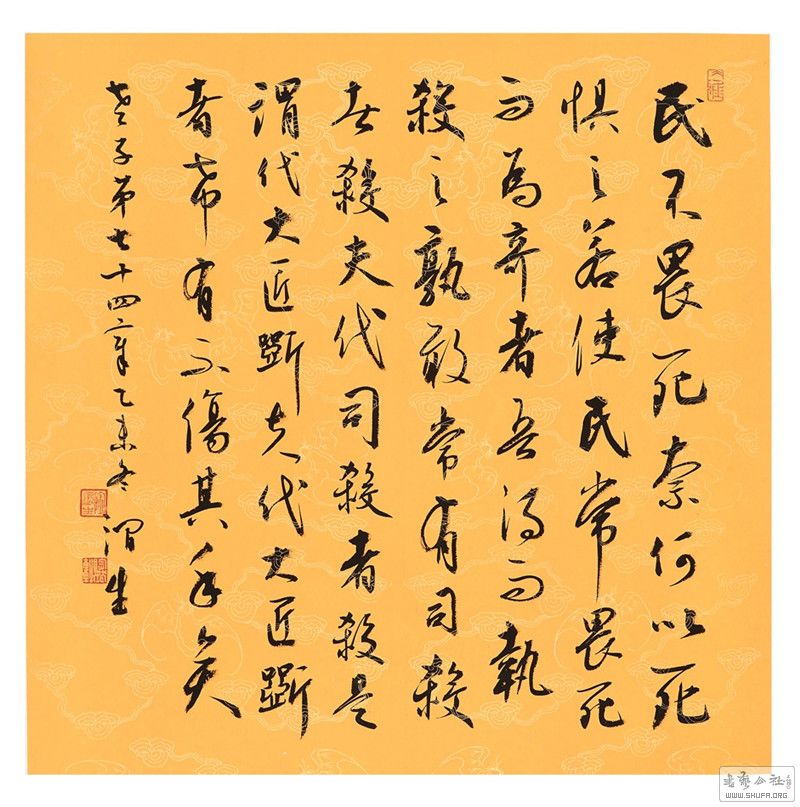 民不畏死奈何以死
惧之若使民常畏死
而為奇者吾得而執
殺之孰敢常有司殺
者殺夫代司殺者殺是
謂代大匠斲夫代大匠斲
者希有不傷其手矣
老子第七十四章乙未冬渭生
書藝公社
WWW.SHUFA.ORG